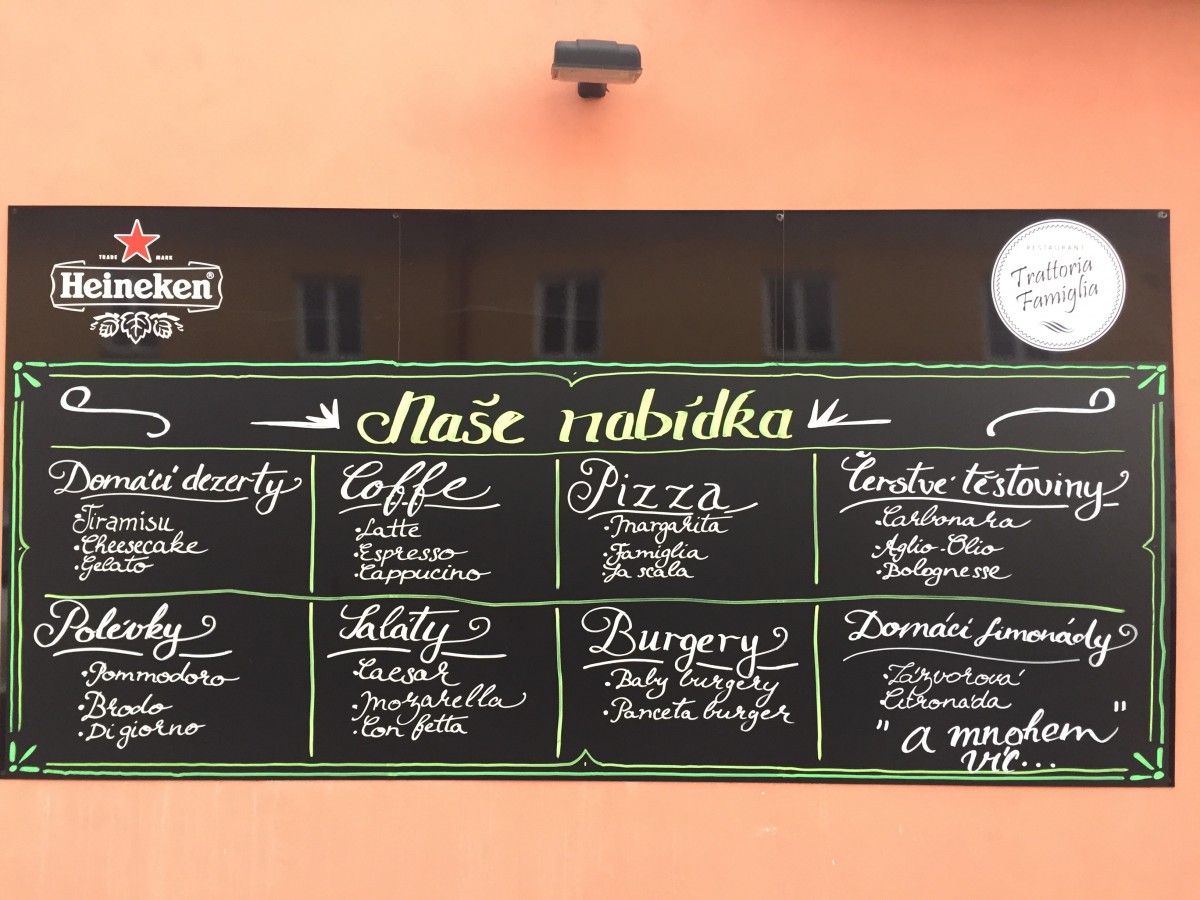 TRADE MARK
Heineken®
RESTAURANT
Trattoria
Famiglia
Naše nabídka
Domácí dezerty
·Tiramisu
·Cheesecake
·Gelato
Coffe
·Latte
·Espresso
·Cappucino
Pizza
·Margarita
·Famiglia
·La scala
Čerstvé těstoviny
·Carbonara
·Aglio-Olio
·Bolognesse
Polévky
·Pommodoro
·Brodo
·Di giorno
Saláty
·Caesar
·Mozarella
·Con fetta
Burgery
·Baby burgery
·Panceta burger
Domácí limonády
·Zázvorová
·Citronáda
"a mnohem"
víc...